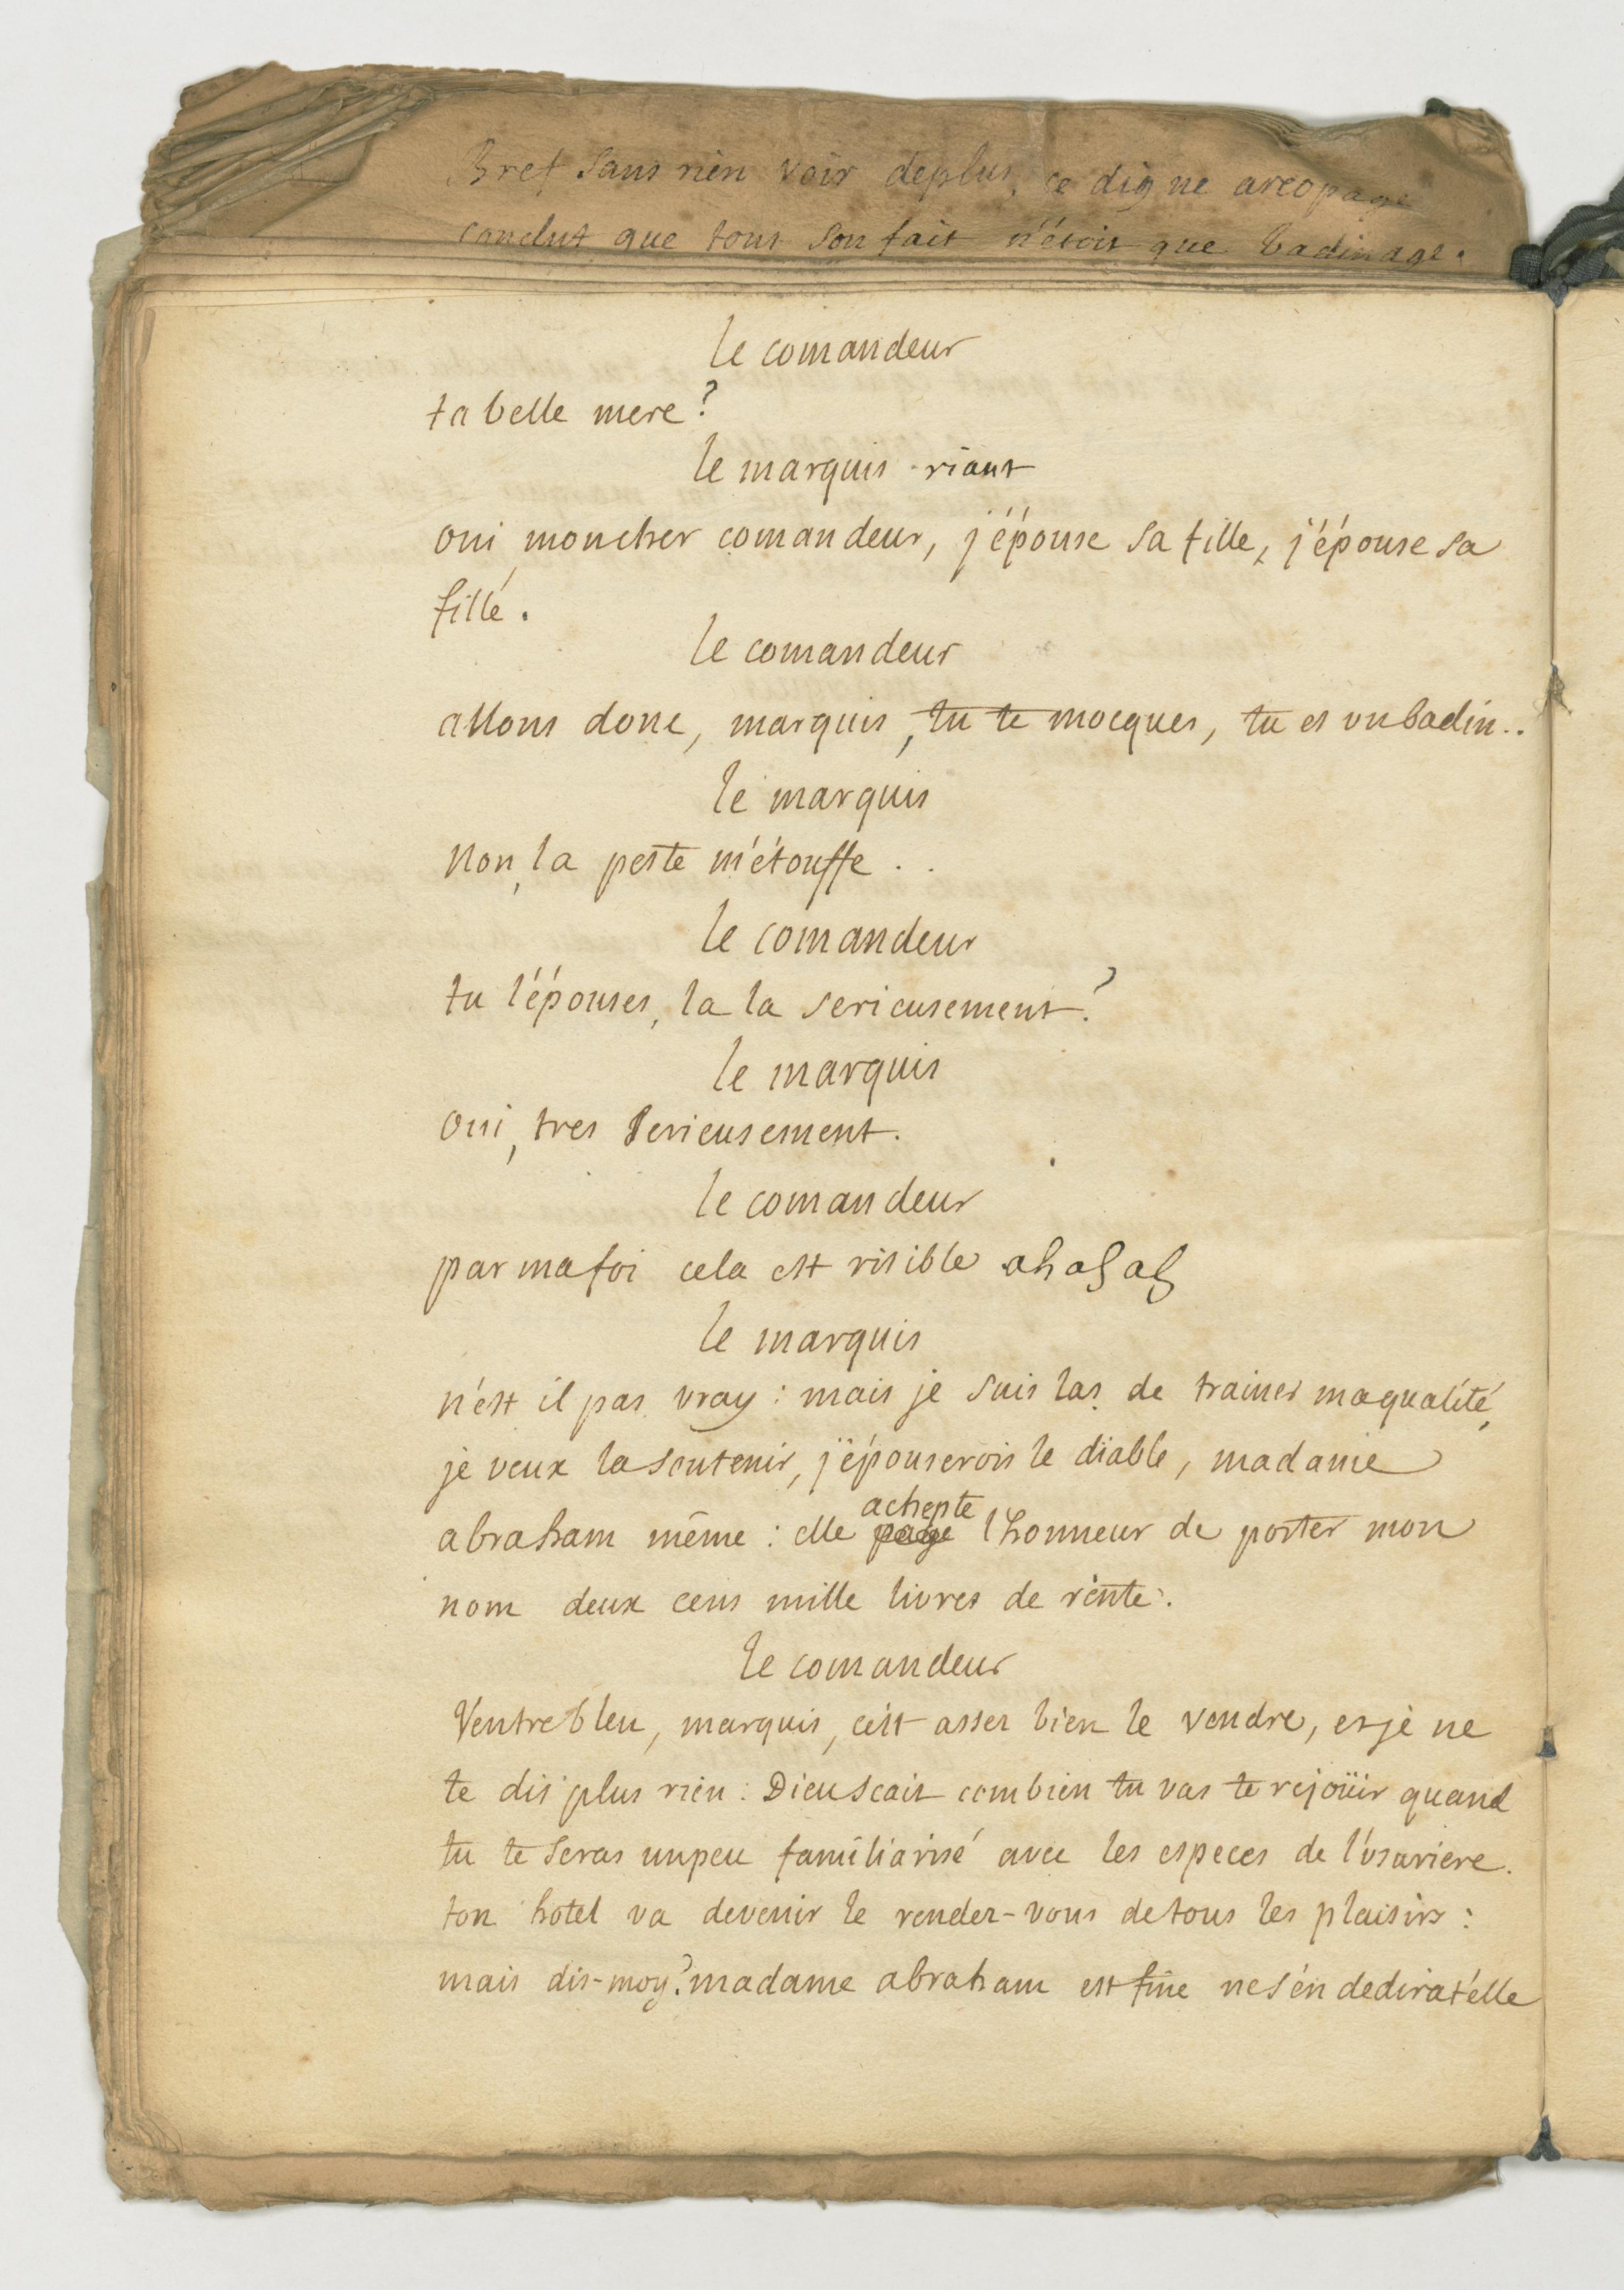 Bref sans rien voir deplus, ce digne areopage
conclut que tout son fait n'étoit que badinage.
le comandeur
ta belle mere?
le marquis riant
oui moncher comandeur, j'épouse sa fille, j'épouse sa
fille.
le comandeur
allons donc, marquis, tu te mocques, tu es un badin..
le marquis
non, la peste m'étouffe . .
le comandeur
tu l'épouses, la la serieusement?
le marquis
oui, tres serieusement.
le comandeur
par mafoi cela est risible ah ah ah
le marquis
n'est il pas vray : mais je suis las de trainer maqualité,
je veux la soutenir, j'épouserois le diable, madame
achepte
abraham même : elle paye l'honneur de porter mon
nom deux cens mille livres de rente.
le comandeur
Ventrebleu, marquis, c'est assez bien le vendre, et je ne
te dis plus rien : Dieu scait combien tu vas te rejoüir quand
tu te seras unpeu familiarisé avec les especes de l'usuriere.
ton hotel va devenir le rendez-vous detous les plaisirs :
mais dis-moy? madame abraham est fine nes'en dedirat'elle